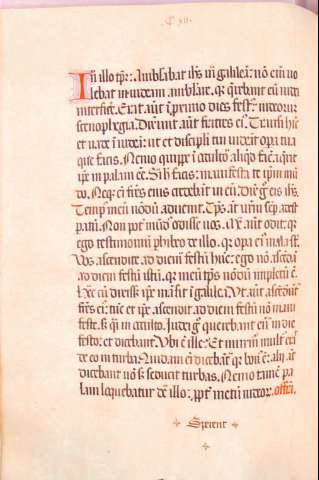 C xii.
In illo tp̄r: Ambulabat ihs in galileā: nō eī uo
lebat in iudeam ambulare. q̄ querebant eū iudei
interficē. Erat aūt ī primo dies fest⁹ iudeorum
scenophegia. Dixerunt aūt fratres eī. Transi hīc
et uade ī iudeā: ut et discipli tui uideāt opa tua
que facis. Nemo quippe ī occulto aliqd facit. et qrit
ipe in palam eē. Si hec facis: manifesta te ipm mū
do. Neq; eī frēs eius credebāt in eū. Dicit g̊ eis ihs.
Temp⁹ meū nōdū aduenit. Tps aūt vrm semp est
patū. Non pōt mūd⁹ odisse uos. Me aūt odit: qr
ego testimoniū phibeo de illo. qr opa eī mala st̄.
Uos ascendite ad diem festū hūc: ego nō ascēdā
ad diem festū istū. qr meū tps nōdū impletū ē.
Hec cū dixisset ipe māsit ī galilea. Ut aūt ascēderūt
frēs eī: tūc et ipe ascendit ad diem festū nō mani
feste. s; qsi in occulto. Judei g̊ querebant eū in die
festo: et dicebant. Ubi ē ille: Et murmur mult⁹ erāt
de eo in turba. Quidam eī dicebāt: qr bon⁹ ē. alij aūt
dicebant nō s; seducit turbas. Nemo tamē pa
lam loquebatur de illo: ppt metū iudeorum. offī.
Spirent